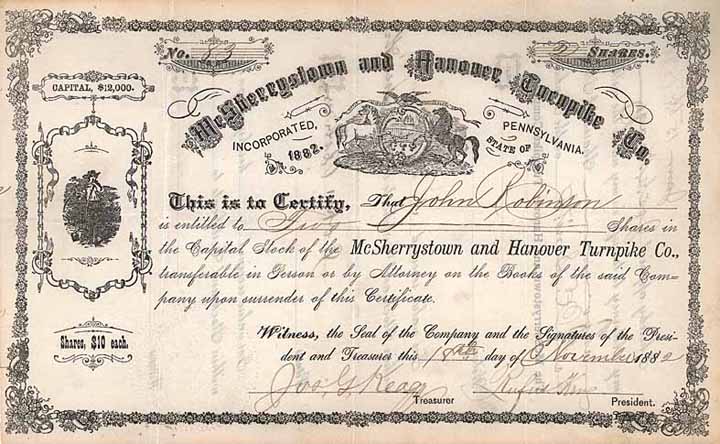 No. 83
2 SHARES.
CAPITAL, $12,000.
McSherrystown and Hanover Turnpike Co.
INCORPORATED, 1882.
STATE OF PENNSYLVANIA.
This is to Certify, That John Robinson
is entitled to Two Shares in
the Capital Stock of the McSherrystown and Hanover Turnpike Co.,
transferable in Person or by Attorney on the Books of the said Com-
pany upon surrender of this Certificate.
Shares, $10 each.
Witness, the Seal of the Company and the Signatures of the Presi-
dent and Treasurer this day of November 1882
Treasurer
President.